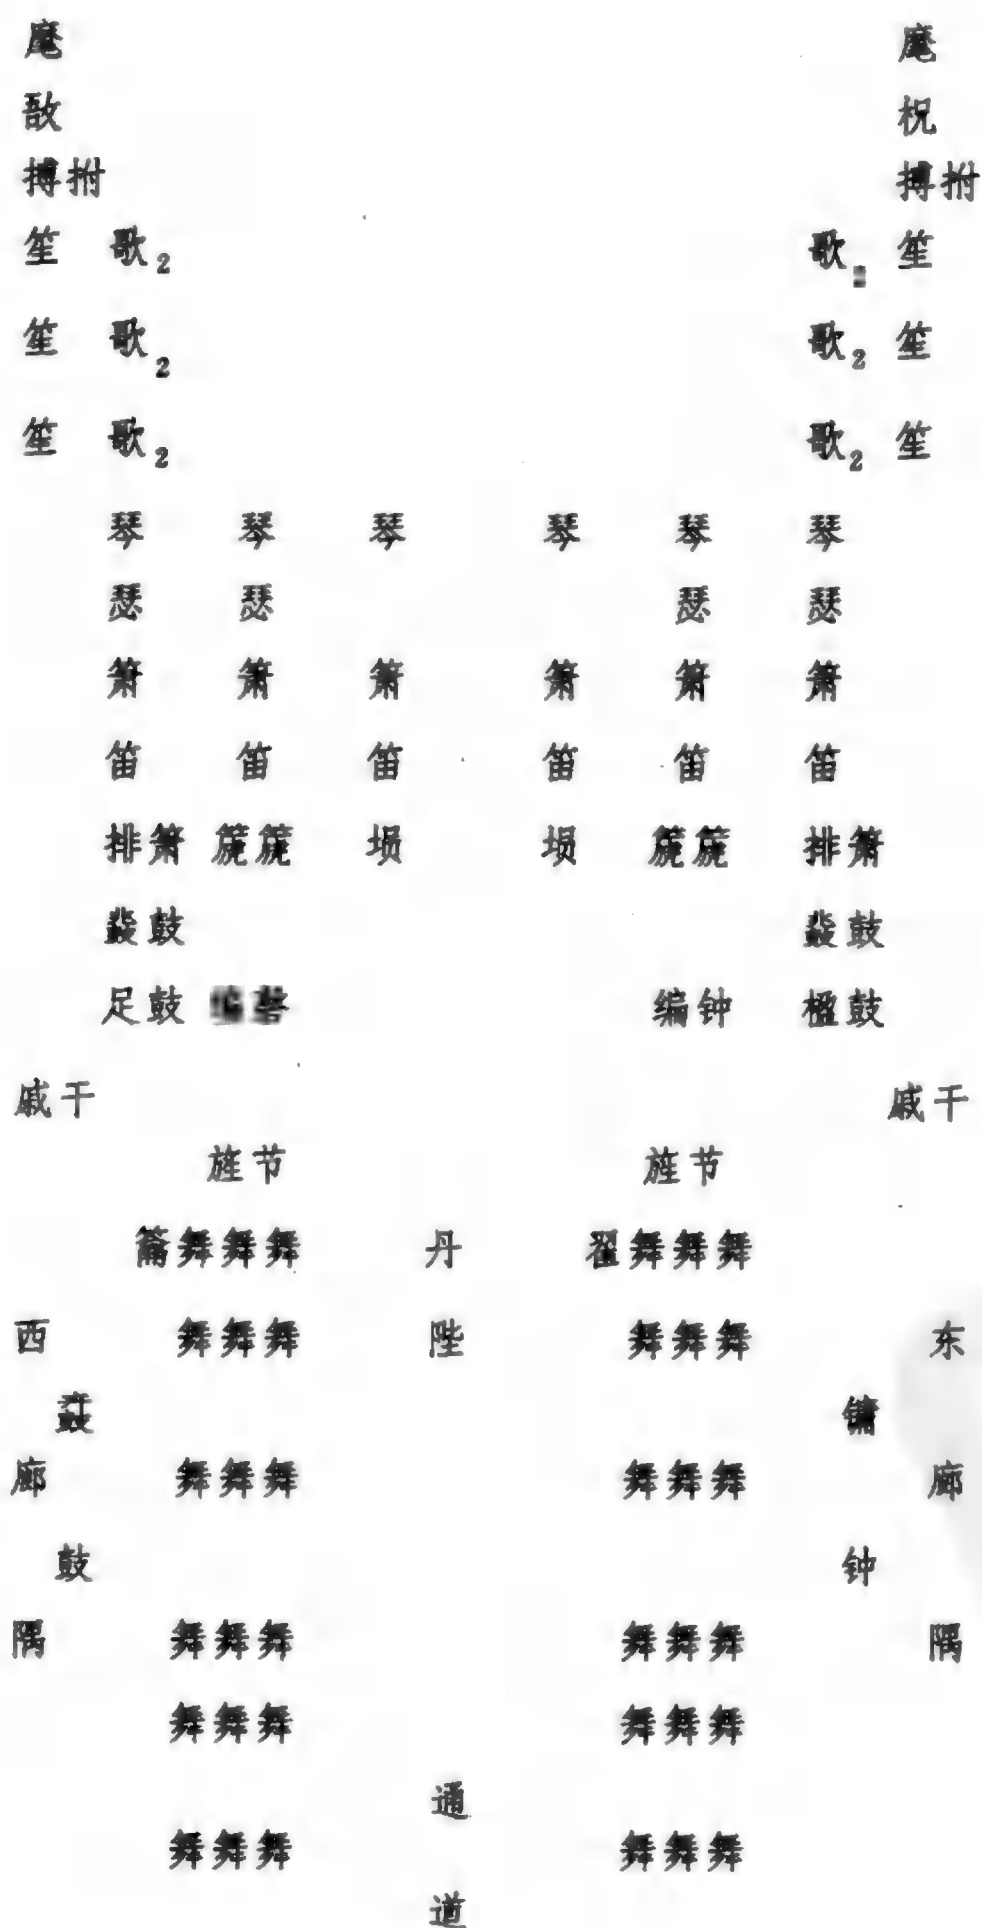 麾 麾
敔 柷
搏拊 搏拊
笙 歌2 歌 笙
笙 歌2 歌2 笙
笙 歌2 歌2 笙
琴 琴 琴 琴 琴 琴
瑟 瑟 瑟 瑟
箫 箫 箫 箫 箫 箫
笛 笛 笛 笛 笛 笛
排箫 篪篪 埙 埙 篪篪 排箫
鼗鼓 鼗鼓
足鼓 编磬 编钟 楹鼓
戚干 戚干
旌节 旌节
籥舞舞舞 丹 翟舞舞舞
西 舞舞舞 陛 舞舞舞 东
鼖 镛
廊 舞舞舞 舞舞舞 廊
鼓 钟
隅 舞舞舞 舞舞舞 隅
舞舞舞 舞舞舞
通
舞舞舞 舞舞舞
道